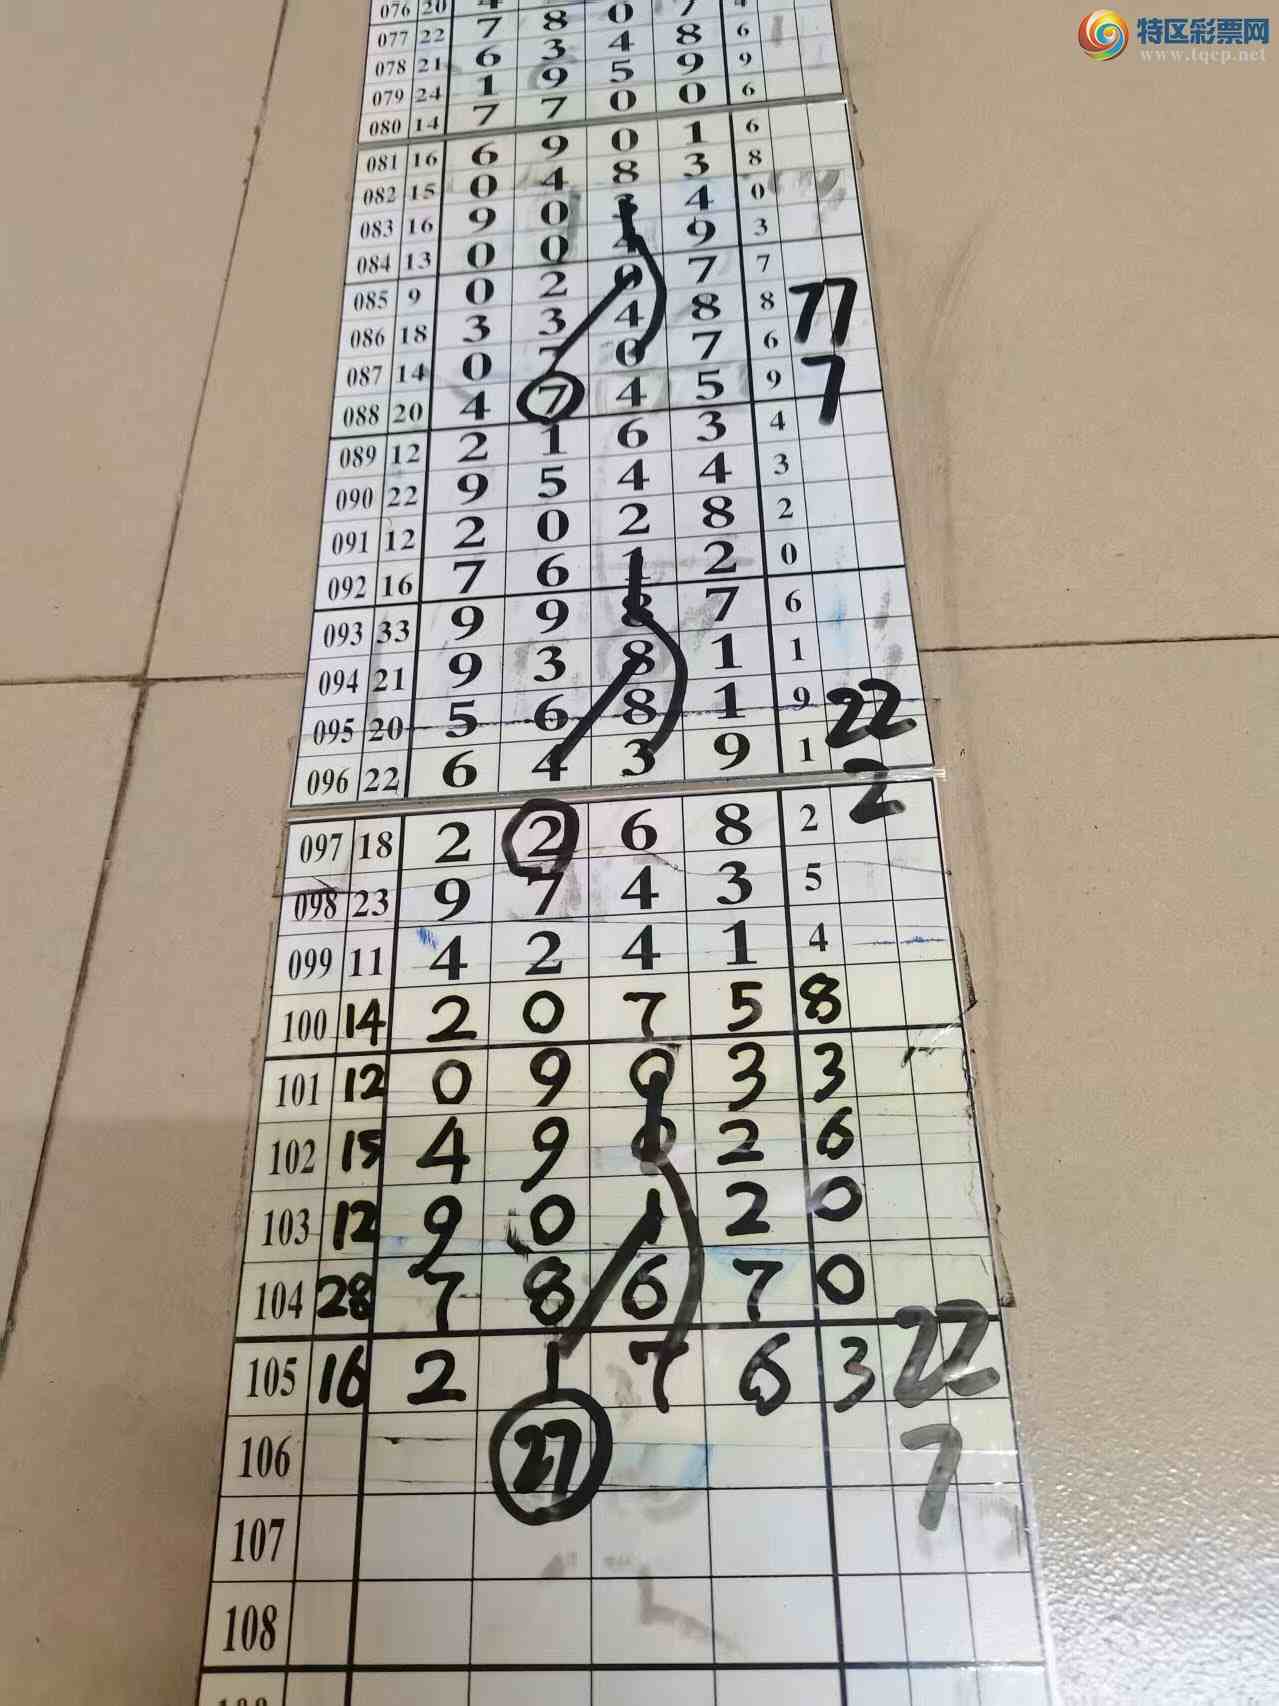 特区彩票网
www.tqcp.net
076 20
077 22 7 8 0 7 4
078 21 6 3 4 8 6
079 24 1 9 5 9 9
080 14 7 7 0 0 6
081 16 6 9 0 1 6
082 15 0 4 8 3 8
083 16 9 0 3 4 0
084 13 0 0 4 9 3
085 9 0 2 0 7 7
086 18 3 3 4 8 8 77
087 14 0 7 0 7 6
088 20 4 7 4 5 9 7
089 12 2 1 6 3 4
090 22 9 5 4 4 3
091 12 2 0 2 8 2
092 16 7 6 1 2 0
093 33 9 9 8 7 6
094 21 9 3 8 1 1
095 20 5 6 8 1 9 22
096 22 6 4 3 9 1 2
097 18 2 2 6 8 2
098 23 9 7 4 3 5
099 11 4 2 4 1 4
100 14 2 0 7 5 8
101 12 0 9 0 3 3
102 15 4 9 0 2 6
103 12 9 0 1 2 0
104 28 7 8 6 7 0
105 16 2 1 7 6 3 22
106 27 7
107
108